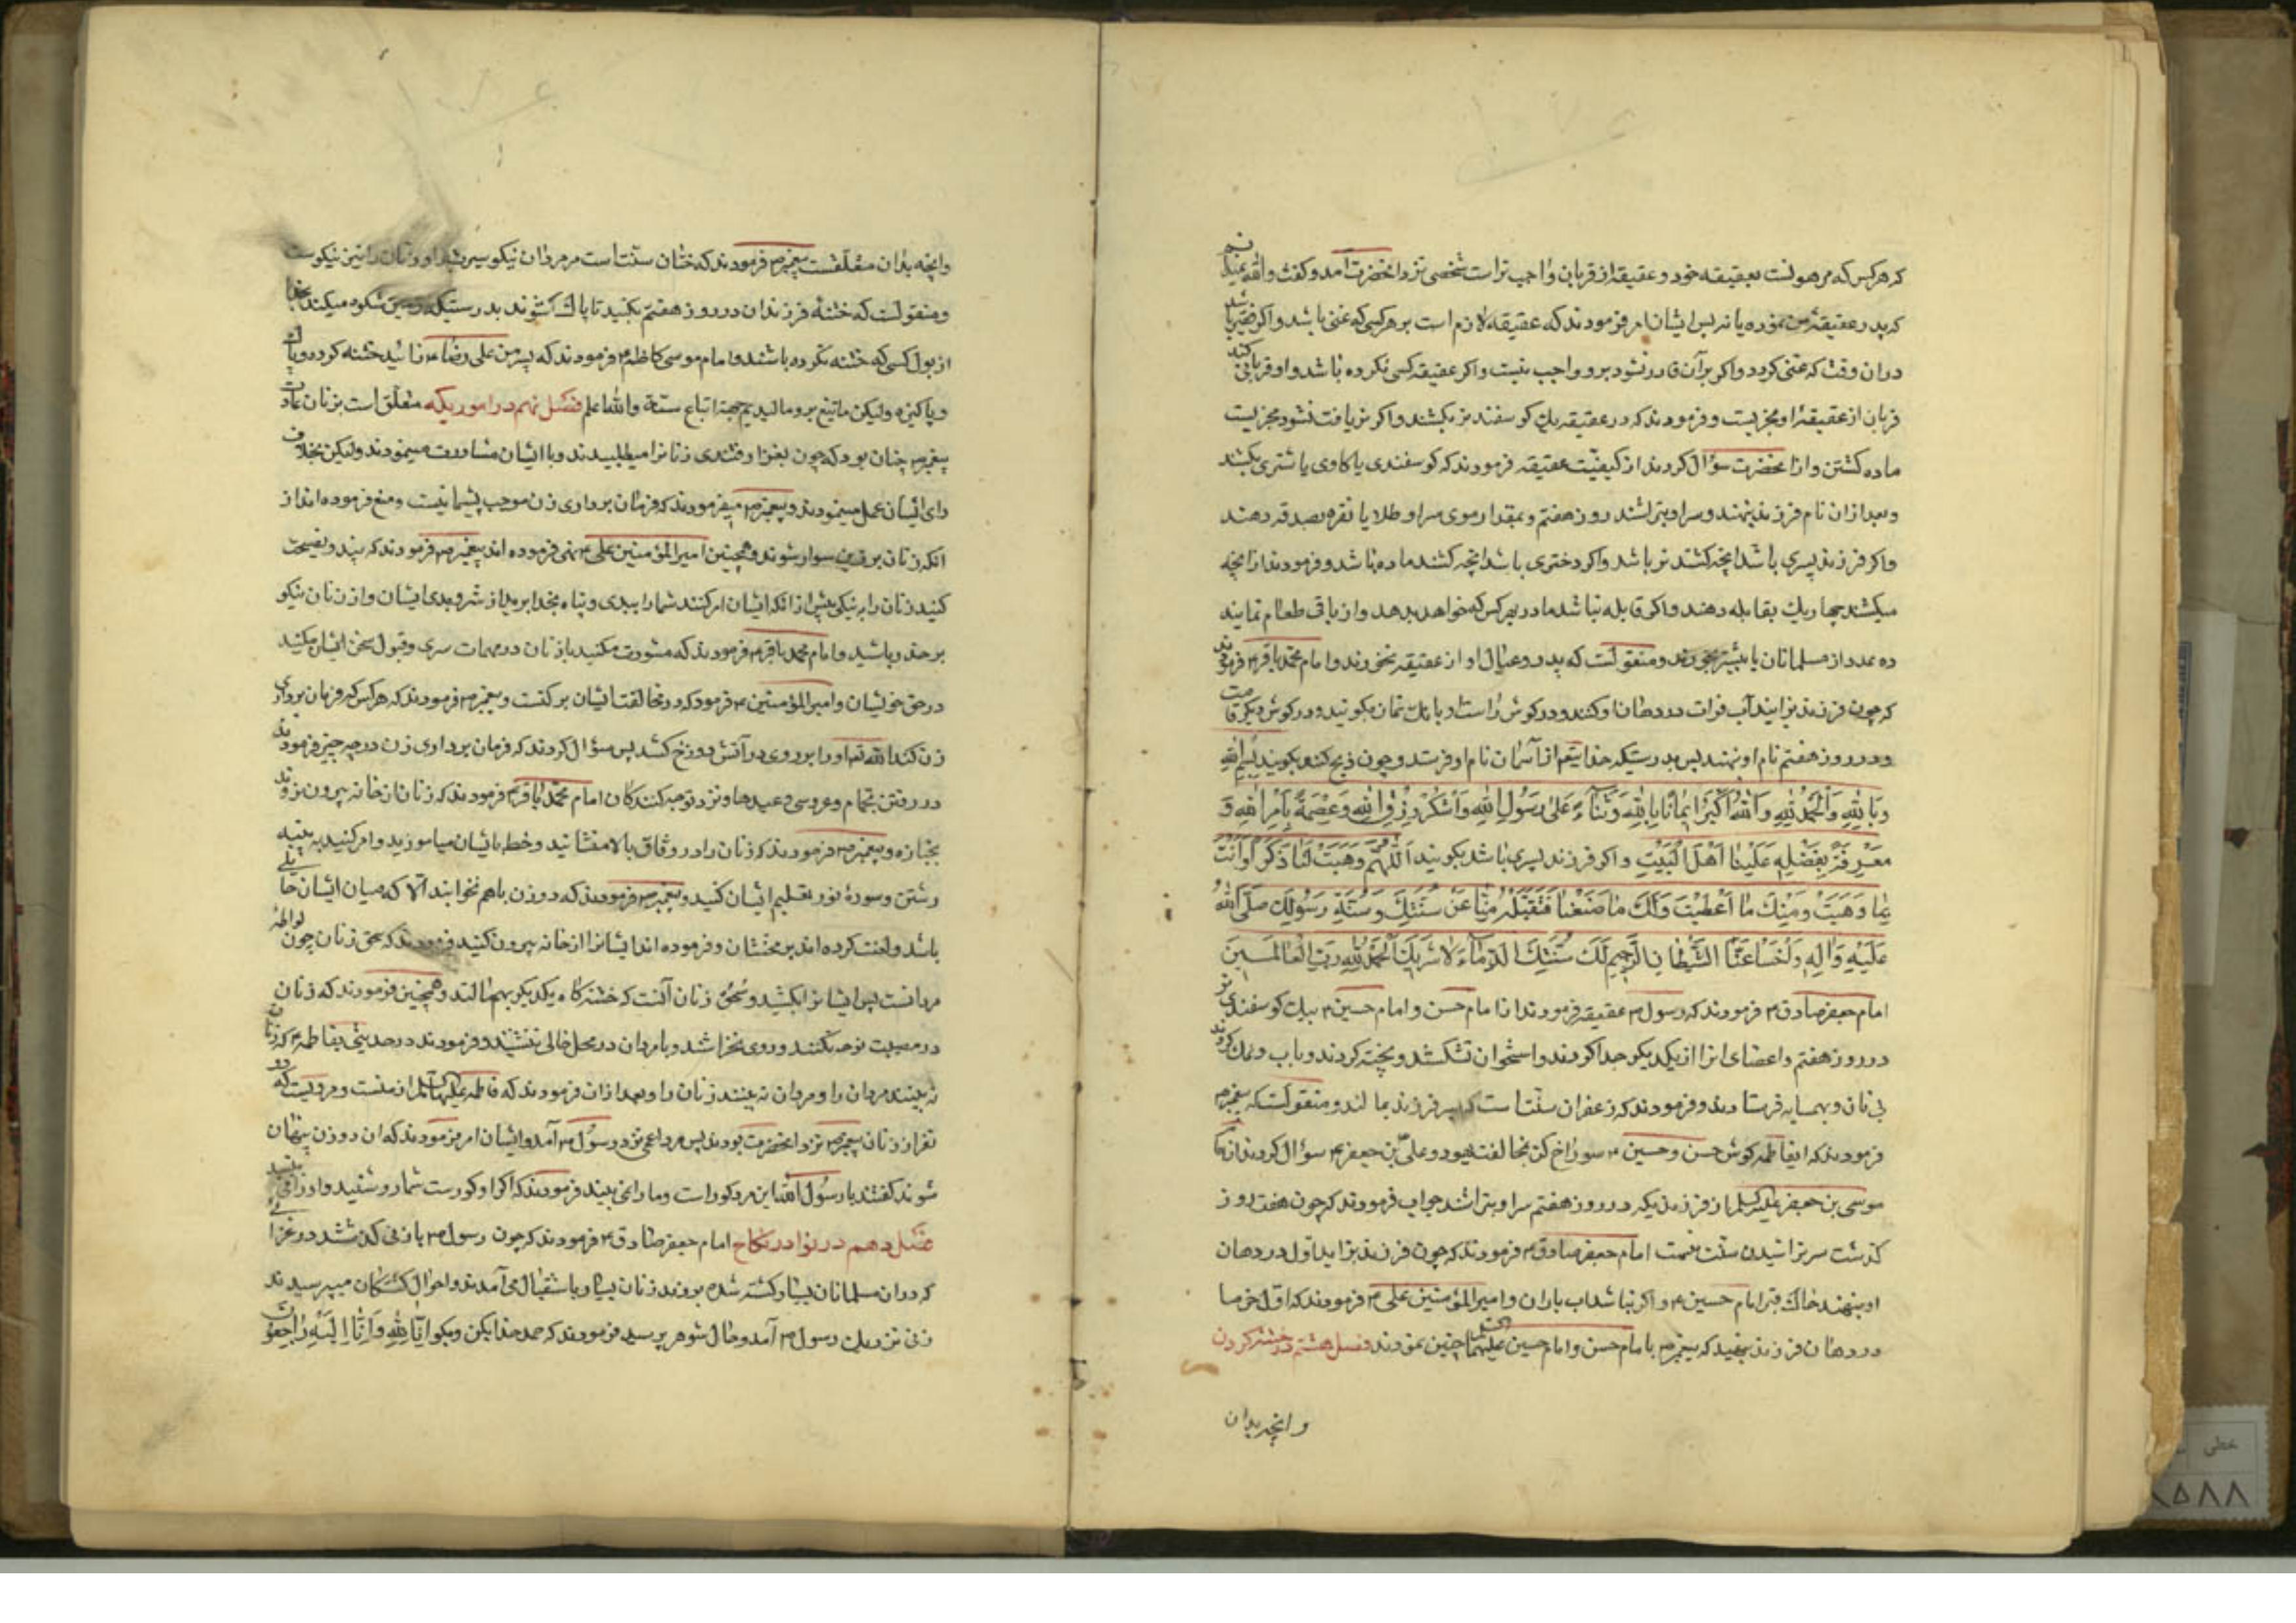 که هرکس که مرهونست بعقیقه خود و عقیقه از قربان واجب تر است شخصی نزد انحضرت آمد و کفت والله نمیدانم
که پدر عقیقه من نموده یا نه پس ایشان امر فرمودند که عقیقه لازم است بر هر کسی که غنی باشد و اکر فقیر باشد
در ان وقت که غنی کردد و اکر بر آن قادر نشود بر او واجب نیست و اکر عقیقه کسی نکرده باشد و او قربانی کند
قربان از عقیقهٔ او مجزیست و فرمودند که در عقیقه یک کوسفند نر بکشند و اکر نر یافت نشود مجزیست
ماده کشتن و از انحضرت سؤال کردند از کیفیّت عقیقه فرمودند که کوسفندی یا کاوی یا شتری بکشند
و بعد از ان نام فرزند بنهند و سر او بتراشند روز هفتم و بمقدار موی سر او طلا یا نقره بصدقه دهند
و اکر فرزند پسری باشد انچه کشند نر باشد و اکر دختری باشد انچه کشند ماده باشد و فرمودند از انچه
میکشند چهار یک بقابله دهند و اکر قابله نباشد مادر بهر کس که خواهد بدهد و از باقی طعام نمایند
ده عدد از مسلمانان یا بیشتر بخورند و منقولست که پدر و عیال او از عقیقه نخورند و امام محمّد باقر ع فرمودند
که چون فرزند بزایند آب فرات در دهان او کنند و در کوش راست او بانک نماز بکویید و در کوش دیکر قامت
و در روز هفتم نام او نهند پس بدرستیکه خدایتعم از آسمان نام او فرستد و چون ذبح کنند بکویند بِسْمِ اللهِ
وَبِاللهِ وَالْحَمْدُ لِلّهِ وَاللهُ اَكْبَرُ ايمَانًا بِاللهِ وَثَنَاءً عَلى رَسُولِ اللهِ وَالشُّكْرُ لِرِزْقِ اللهِ وَعِصْمَةً بِاَمْرِ اللهِ وَ
مَعْرِفَةً بِفَضْلِهِ عَلَيْنا اَهْلَ الْبَيْتِ و اکر فرزند پسری باشد بکویند اَللّهُمَّ وَهَبْتَ لَنا ذَكَرًا وَاَنْتَ
بِما وَهَبْتَ وَمِنْكَ ما اَعْطَيْتَ وَلَكَ ما صَنَعْنا فَتَقَبَّلْهُ مِنّا عَنْ سُنَّتِكَ وَسُنَّةِ رَسُولِكَ صَلَّى اللهُ
عَلَيْهِ وَآلِهِ وَاخْسَأ عَنَّا الشَّيْطانَ الرَّجِيمَ لَكَ سُفِكَتِ الدِّماءُ لا شَرِيكَ لَكَ الْحَمْدُ لِلّهِ رَبِّ الْعالَمِينَ
امام جعفر صادق ع فرمودند که رسول ص عقیقه فرمودند از امام حسن و امام حسین ع بیک کوسفندی نر
در روز هفتم و اعضای انرا از یکدیکر جدا کردند و استخوان نشکستند و پخته کردند و باب و نمک کردند
بی نان و بهمسایه فرستادند و فرمودند که زعفران سنّت است که بر سر فرزند بمالند و منقولست که پیغمبر ص
فرمودند که ایفاطمه کوش حسن و حسین ع سوراخ کن بمخالفت یهود و علی بن جعفر ع سؤال کردند از امام
موسی بن جعفر علیه السلام از فرزندیکه در روز هفتم سر او نتراشند جواب فرمودند که چون هفت روز
کذشت سر تراشیدن سنّت نیست امام جعفر صادق ع فرمودند که چون فرزند بزاید اوّل در دهان
او بنهند خاک قبر امام حسین ع و اکر نباشد اب باران و امیر المؤمنین علی ع فرمودند که اوّل خرما
در دهان فرزند بنهید که پیغمبر ص با امام حسن و امام حسین علیهما السلام چنین نمودند فصل هشتم در ختنه کردن
و انچه بدان
و انچه بدان متعلّقست پیغمبر ص فرمودند که ختان سنّت است مر مردان نیکو سیرت را و زنان را نیز نیکوست
و منقولست که ختنهٔ فرزندان در روز هفتم بکنید تا پاک شوند بدرستیکه زمین شکوه میکند بخدا
از بول کسی که ختنه نکرده باشند و امام موسی کاظم ع فرمودند که پسر من علی رضا ع زائید ختنه کرده و پاک
و پاکیزه ولیکن ما تیغ بر او مالیدیم جهة اتباع سنّة والله اعلم فصل نهم در اموریکه متعلّق است بزنان عادت
پیغمبر ص چنان بود که چون بغزا رفتندی زنانرا میطلبیدند و با ایشان مشاورت مینمودند ولیکن بخلاف
رای ایشان عمل مینمودند و پیغمبر ص میفرمودند که فرمان برداری زن موجب پشیمانیست و منع فرموده اند از
انکه زنان بر زین سوار شوند و همچنین امیر المؤمنین علی ع نهی فرموده اند پیغمبر ص فرمودند که پند و نصیحت
کنید زنان را به نیکی پیش از انکه ایشان امر کنند شما را ببدی و پناه بخدا برید از شر و بدی ایشان و از زنان نیکو
بر حذر باشید و امام محمد باقر ع فرمودند که مشورت مکنید با زنان در مهمات سری و قبول سخن ایشان مکنید
در حق خویشان و امیر المؤمنین ع فرمود که در مخالفت ایشان برکتست و پیغمبر ص فرمودند که هر کس که فرمان برداری
زن کند الله تعم او را بر روی در آتش دوزخ کشد پس سؤال کردند که فرمان برداری زن در چه چیز فرمودند
در رفتن بحمام و عروسی و عیدها و نزد نوحه کنندکان امام محمد باقر ع فرمودند که زنان از خانه بیرون نروند
بجنازه و پیغمبر ص فرمودند که زنان را در وثاق بالا منشانید و خط بایشان میاموزید و امر کنید به پنبه
رشتن و سورهٔ نور تعلیم ایشان کنید و پیغمبر ص فرمودند که دو زن باهم نخوابند الّا که میان ایشان حائلی
باشد و لعنت کرده اند بر مخنثان و فرموده اند ایشانرا از خانه بیرون کنید فرمودند که سحق زنان چون لواطهٔ
مردانست پس ایشانرا بکشید و سُحْق زنان آنست که ختنه کاه یکدیکر بهم مالند و همچنین فرمودند که زنان
در مصیبت نوحه نکنند و روی نخراشند و با مردان در محل خالی ننشینند و فرمودند در حدیثی بفاطمه ع که زنان
نه بینند مردان را و مردان نه بینند زنان را و بعد از ان فرمودند که فاطمه علیها السلام از منست و مرویست که دو
نفر از زنان پیغمبر ص نزد انحضرت بودند پس مرد اعمی نزد رسول ص آمد و ایشان امر فرمودند که ان دو زن پنهان
شوند کفتند یا رسول الله این مرد کور است و ما را نمی بیند فرمودند که اکر او کورست شما روشنید
فصل دهم در نوادر نکاح امام جعفر صادق ع فرمودند که چون رسول ص باز می کشتند در غزا
که در ان مسلمانان بسیار کشته شده بودند زنان بسیار باستقبال می آمدند و احوال کشتکان میپرسیدند
زنی نزدیک رسول ص آمد و حال شوهر پرسید فرمودند که حمد خدا بکن و بکو اِنّا لِلّهِ وَاِنّا اِلَيْهِ راجِعُون
خطی